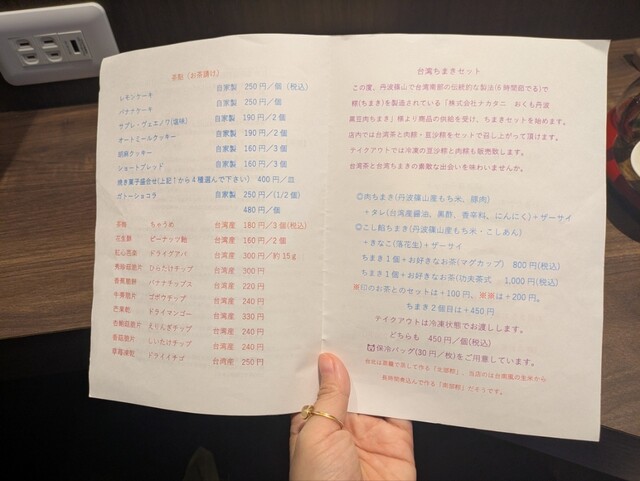 茶點（お茶請け）
レモンケーキ 自家製 250円／個（税込）
バナナケーキ 自家製 250円／個
サブレ・ヴェエノワ(塩味) 自家製 190円／2個
オートミールクッキー 自家製 190円／2個
胡麻クッキー 自家製 160円／3個
ショートブレッド 自家製 160円／3個
焼き菓子盛合せ(上記１から４種選んで下さい) 400円／皿
ガトーショコラ 自家製 250円／(1/2個)
480円／個
茶梅 ちゃうめ 台湾産 180円／3個(税込)
花生酥 ピーナッツ飴 台湾産 160円／2個
紅心芭楽 ドライグアバ 台湾産 300円／約15g
ひらたけチップ 台湾産 300円
バナナチップス 台湾産 220円
牛蒡脆片 ゴボウチップ 台湾産 240円
芒果乾 ドライマンゴー 台湾産 330円
杏鮑菇脆片 えりんぎチップ 台湾産 240円
香菇脆片 しいたけチップ 台湾産 240円
草莓凍乾 ドライイチゴ 台湾産 250円
台湾ちまきセット
この度、丹波篠山で台湾南部の伝統的な製法(6時間茹でる)で
粽(ちまき)を製造されている「株式会社ナカタニ おくも丹波
黒豆肉ちまき」様より商品の供給を受け、ちまきセットを始めます。
店内では台湾茶と肉粽・豆沙粽をセットで召し上がって頂けます。
テイクアウトでは冷凍の豆沙粽と肉粽も販売致します。
台湾茶と台湾ちまきの素敵な出会いを味わいませんか。
◎肉ちまき(丹波篠山産もち米、豚肉)
＋タレ(台湾産醤油、黒酢、香辛料、にんにく)＋ザーサイ
◎こし餡ちまき(丹波篠山産もち米・こしあん)
＋きなこ(落花生)＋ザーサイ
ちまき１個＋お好きなお茶(マグカップ) 800円(税込)
ちまき１個＋お好きなお茶(功夫茶式 1,000円(税込)
印のお茶とのセットは＋100円、は＋200円。
ちまき２個目は＋450円
テイクアウトは冷凍状態でお渡しします。
どちらも 450円／個(税込)
保冷バッグ(30円／枚)をご用意しています。
台北は蒸籠で蒸して作る「北部粽」、当店のは台南風の生米から
長時間煮込んで作る「南部粽」だそうです。